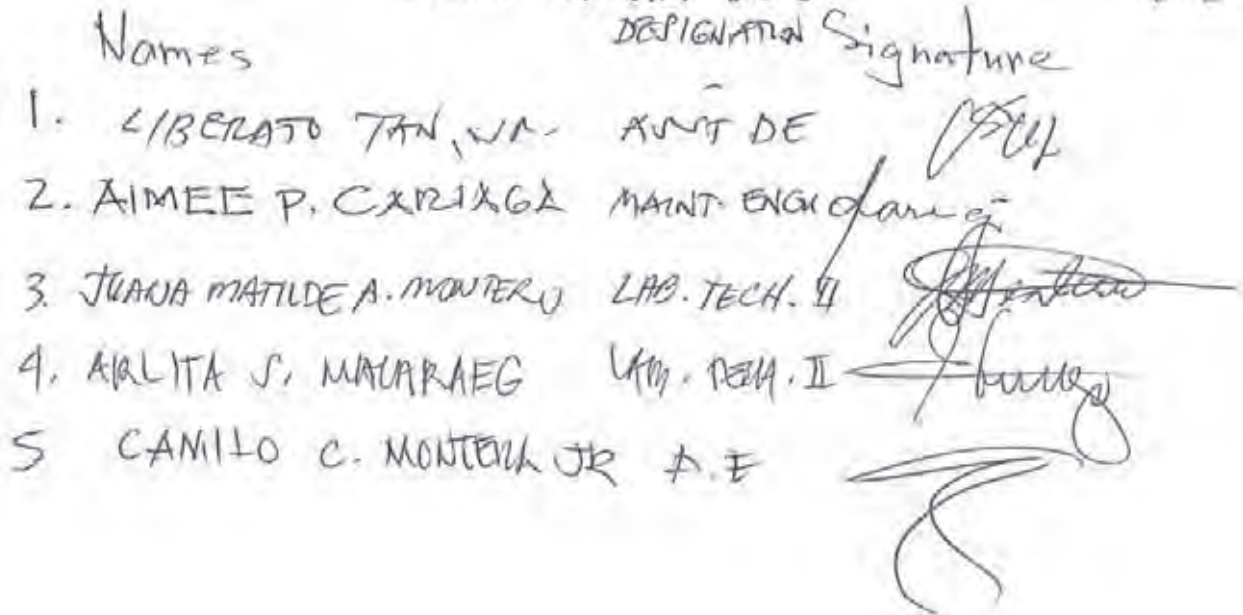 Names DESIGNATION Signature
1. LIBERATO TAN, JR. DE
2. AIMEE P. CARIAGA MAINT. ENGR
3. JUANA MATILDE A. MONTERO LAB. TECH. II
4. ARLITA S. MACARAEG LAB. TECH. II
5 CAMILO C. MONTERA JR A.E